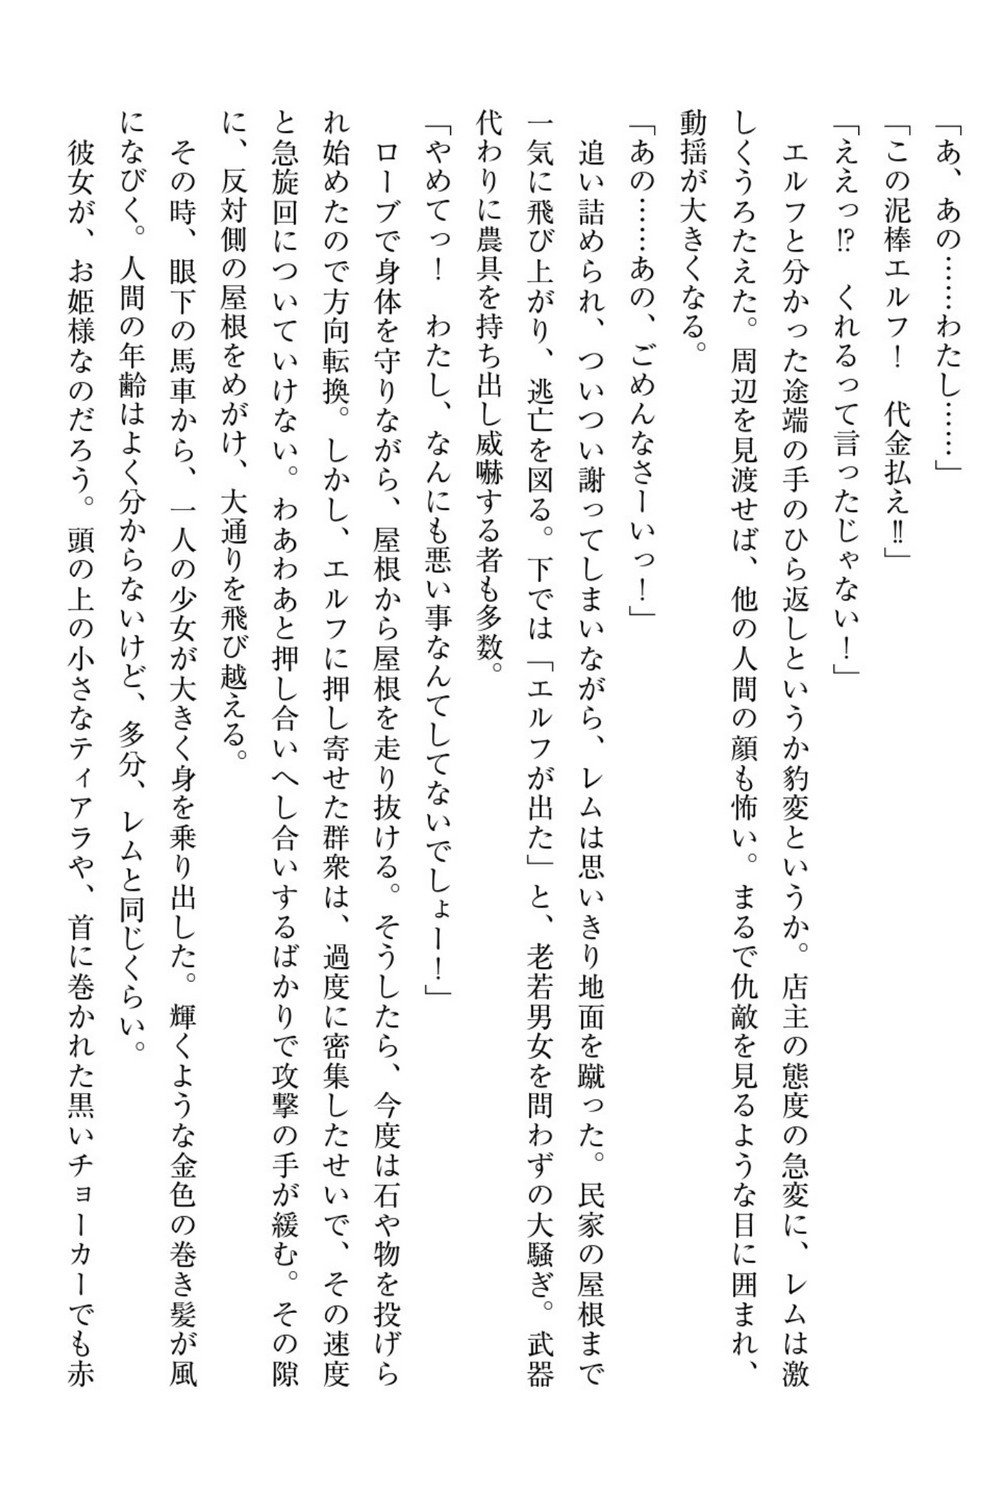 「あ、あの……わたし……」
「この泥棒エルフ！　代金払え‼」
「ええっ⁉　くれるって言ったじゃない！」
　エルフと分かった途端の手のひら返しというか豹変というか。店主の態度の急変に、レムは激
しくうろたえた。周辺を見渡せば、他の人間の顔も怖い。まるで仇敵を見るような目に囲まれ、
動揺が大きくなる。
「あの……あの、ごめんなさーいっ！」
　追い詰められ、ついつい謝ってしまいながら、レムは思いきり地面を蹴った。民家の屋根まで
一気に飛び上がり、逃亡を図る。下では「エルフが出た」と、老若男女を問わずの大騒ぎ。武器
代わりに農具を持ち出し威嚇する者も多数。
「やめてっ！　わたし、なんにも悪い事なんてしてないでしょー！」
　ローブで身体を守りながら、屋根から屋根を走り抜ける。そうしたら、今度は石や物を投げら
れ始めたので方向転換。しかし、エルフに押し寄せた群衆は、過度に密集したせいで、その速度
と急旋回についていけない。わあわあと押し合いへし合いするばかりで攻撃の手が緩む。その隙
に、反対側の屋根をめがけ、大通りを飛び越える。
　その時、眼下の馬車から、一人の少女が大きく身を乗り出した。輝くような金色の巻き髪が風
になびく。人間の年齢はよく分からないけど、多分、レムと同じくらい。
　彼女が、お姫様なのだろう。頭の上の小さなティアラや、首に巻かれた黒いチョーカーでも赤